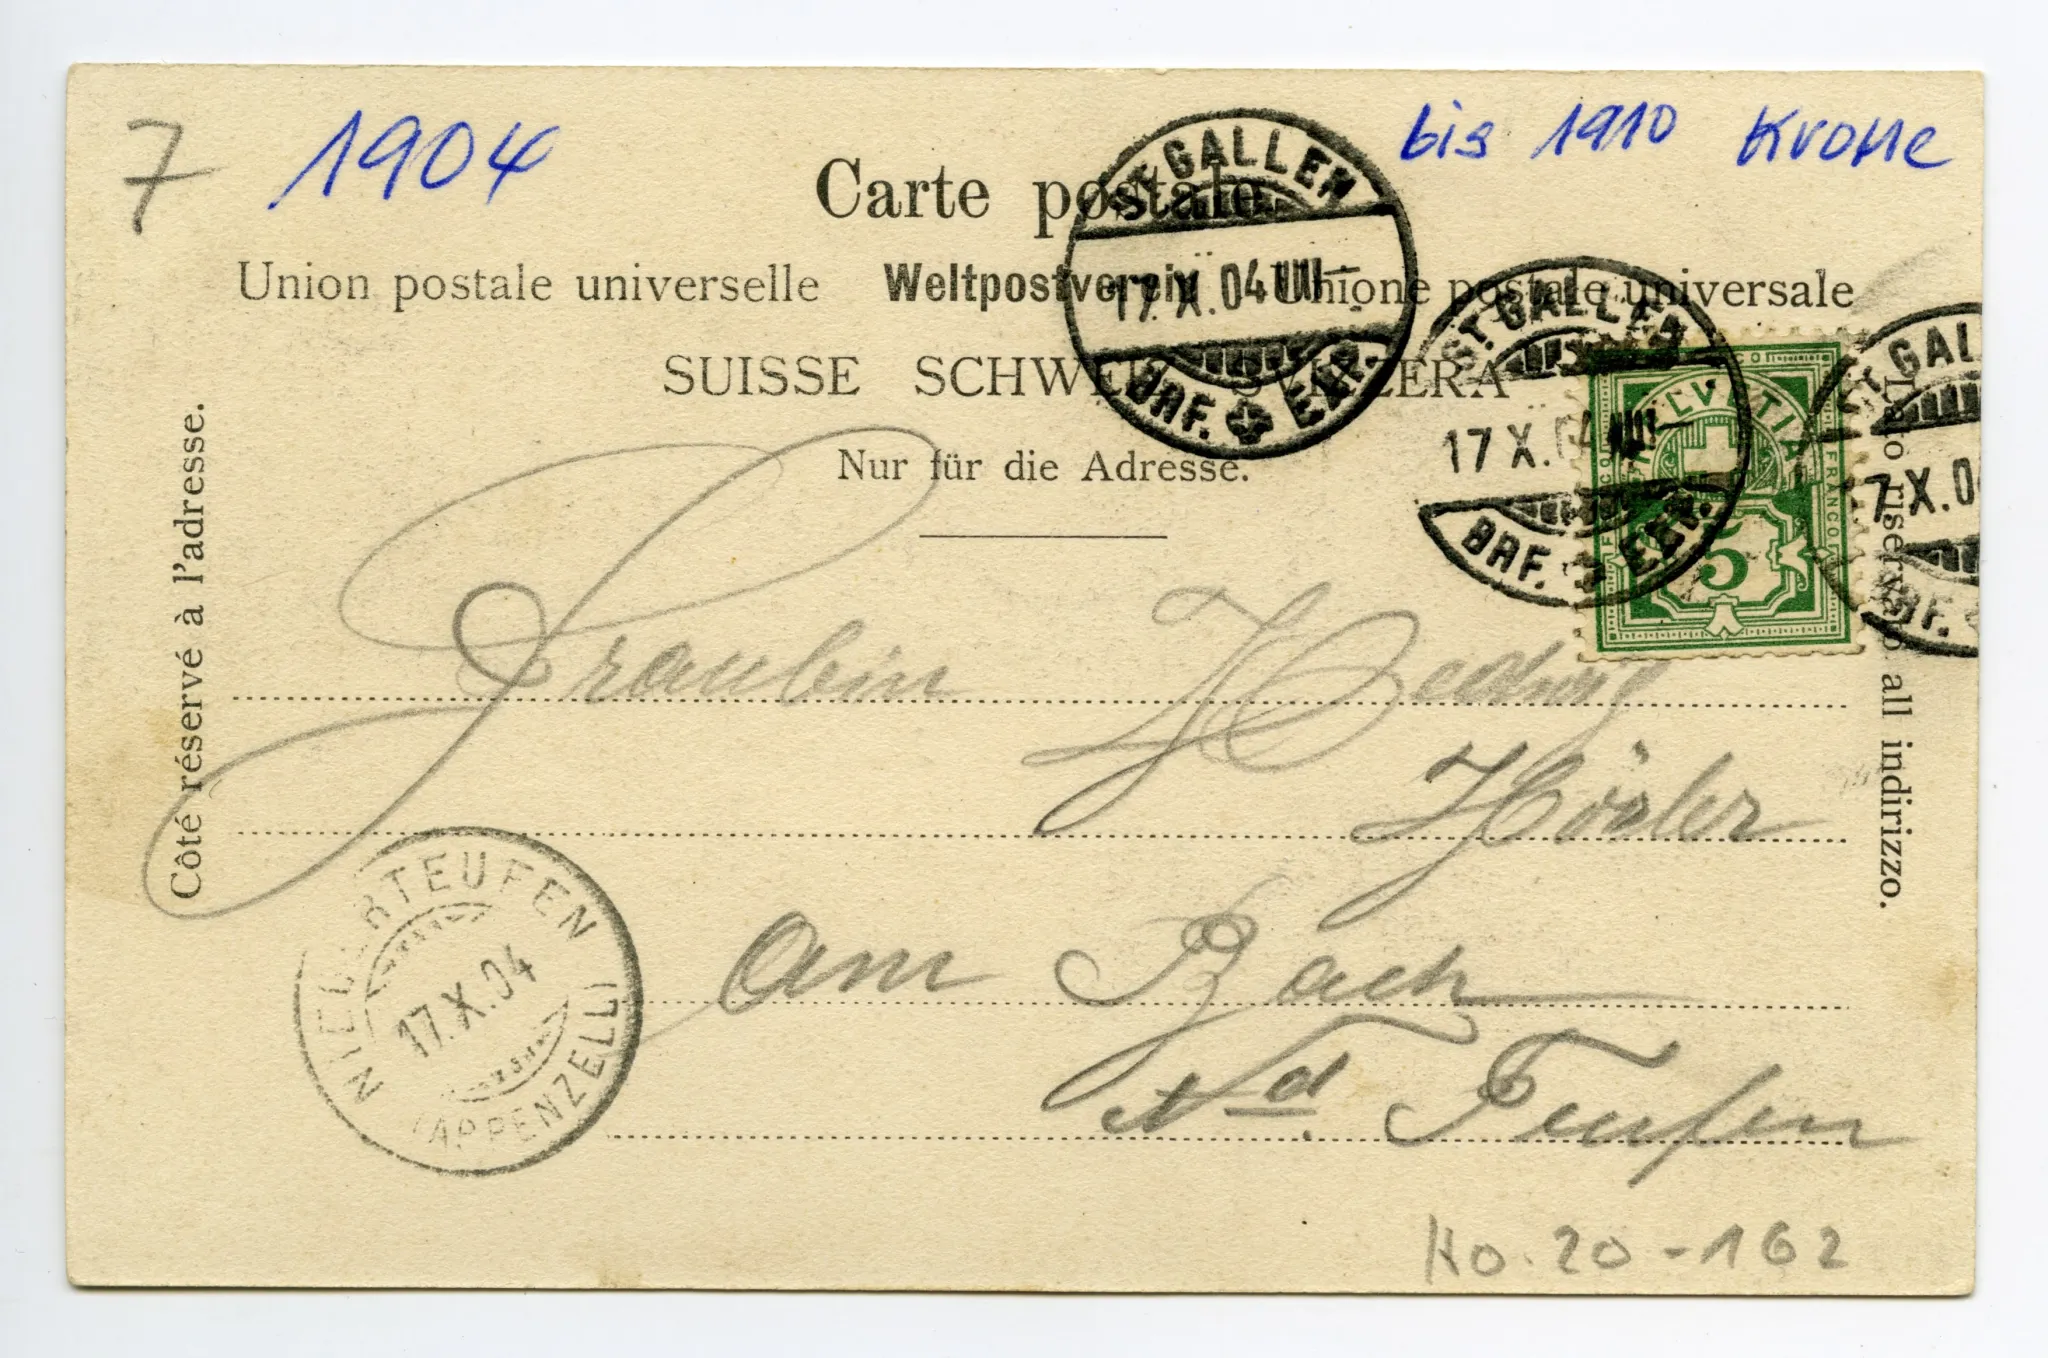 7 1904 bis 1910 Krone
Carte postale
Union postale universelle Weltpostverein Unione postale universale
SUISSE SCHWEIZ SVIZZERA
Nur für die Adresse.
Côté réservé à l'adresse.
Lato riservato all indirizzo.
ST. GALLEN
17.X.04.VIII–
BRF. EXP.
ST. GALLEN
17.X.04.VIII–
BRF. EXP.
HELVETIA
FRANCO
5
ST. GAL
7.X.0
BRF.
Fräulein Hedwig
Hösler
am Bach
Nd. Teufen
NIEDERTEUFEN
17.X.04
(APPENZELL)
Ho.20-162